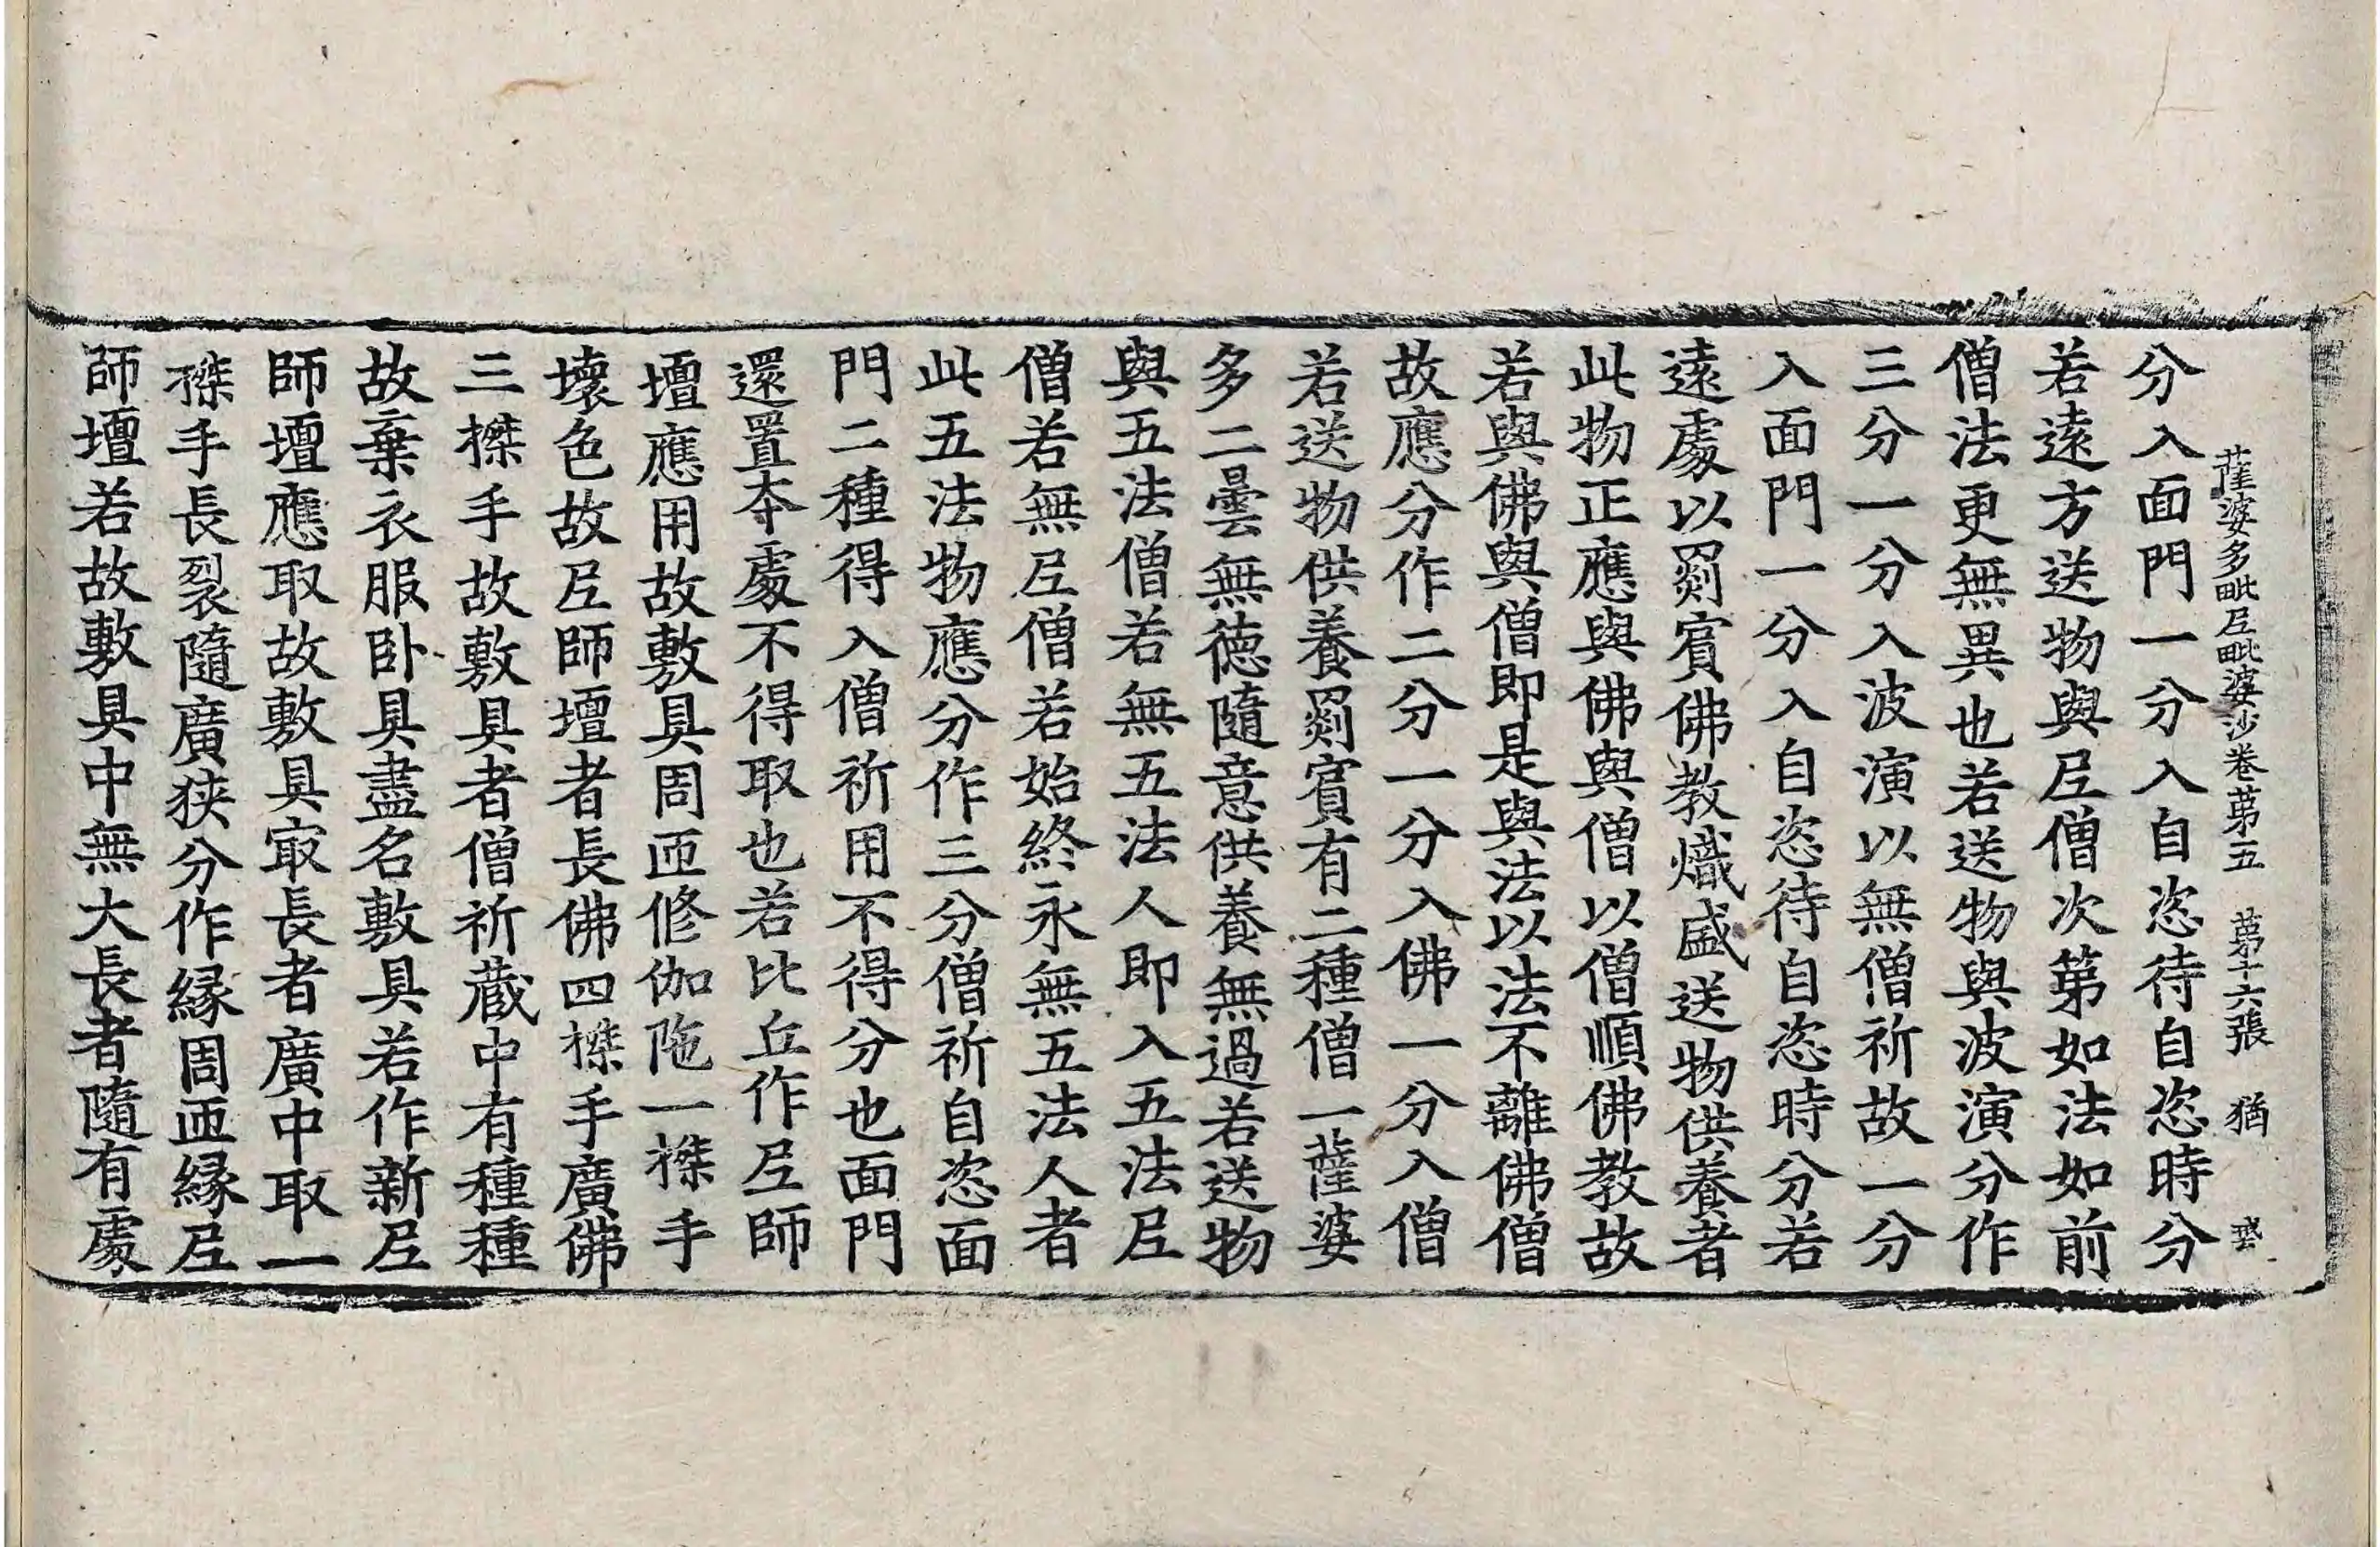 薩婆多毗尼毗婆沙卷第五 第十六張 猶
分入面門一分入自恣待自恣時分
若遠方送物與尼僧次第如法如前
僧法更無異也若送物與波演分作
三分一分入波演以無僧祈故一分
入面門一分入自恣待自恣時分若
遠處以罽賓佛教熾盛送物供養者
此物正應與佛與僧以僧順佛教故
若與佛與僧即是與法以法不離佛僧
故應分作二分一分入佛一分入僧
若送物供養罽賓有二種僧一薩婆
多二曇無德隨意供養無過若送物
與五法僧若無五法人即入五法尼
僧若無尼僧若始終永無五法人者
此五法物應分作三分僧祈自恣面
門二種得入僧祈用不得分也面門
還置本處不得取也若比丘作尼師
壇應用故敷具周匝修伽陁一搩手
壞色故尼師壇者長佛四搩手廣佛
三搩手故敷具者僧祈藏中有種種
故棄衣服卧具盡名敷具若作新尼
師壇應取故敷具㝡長者廣中取一
搩手長裂隨廣狹分作緣周匝緣尼
師壇若故敷具中無大長者隨有處